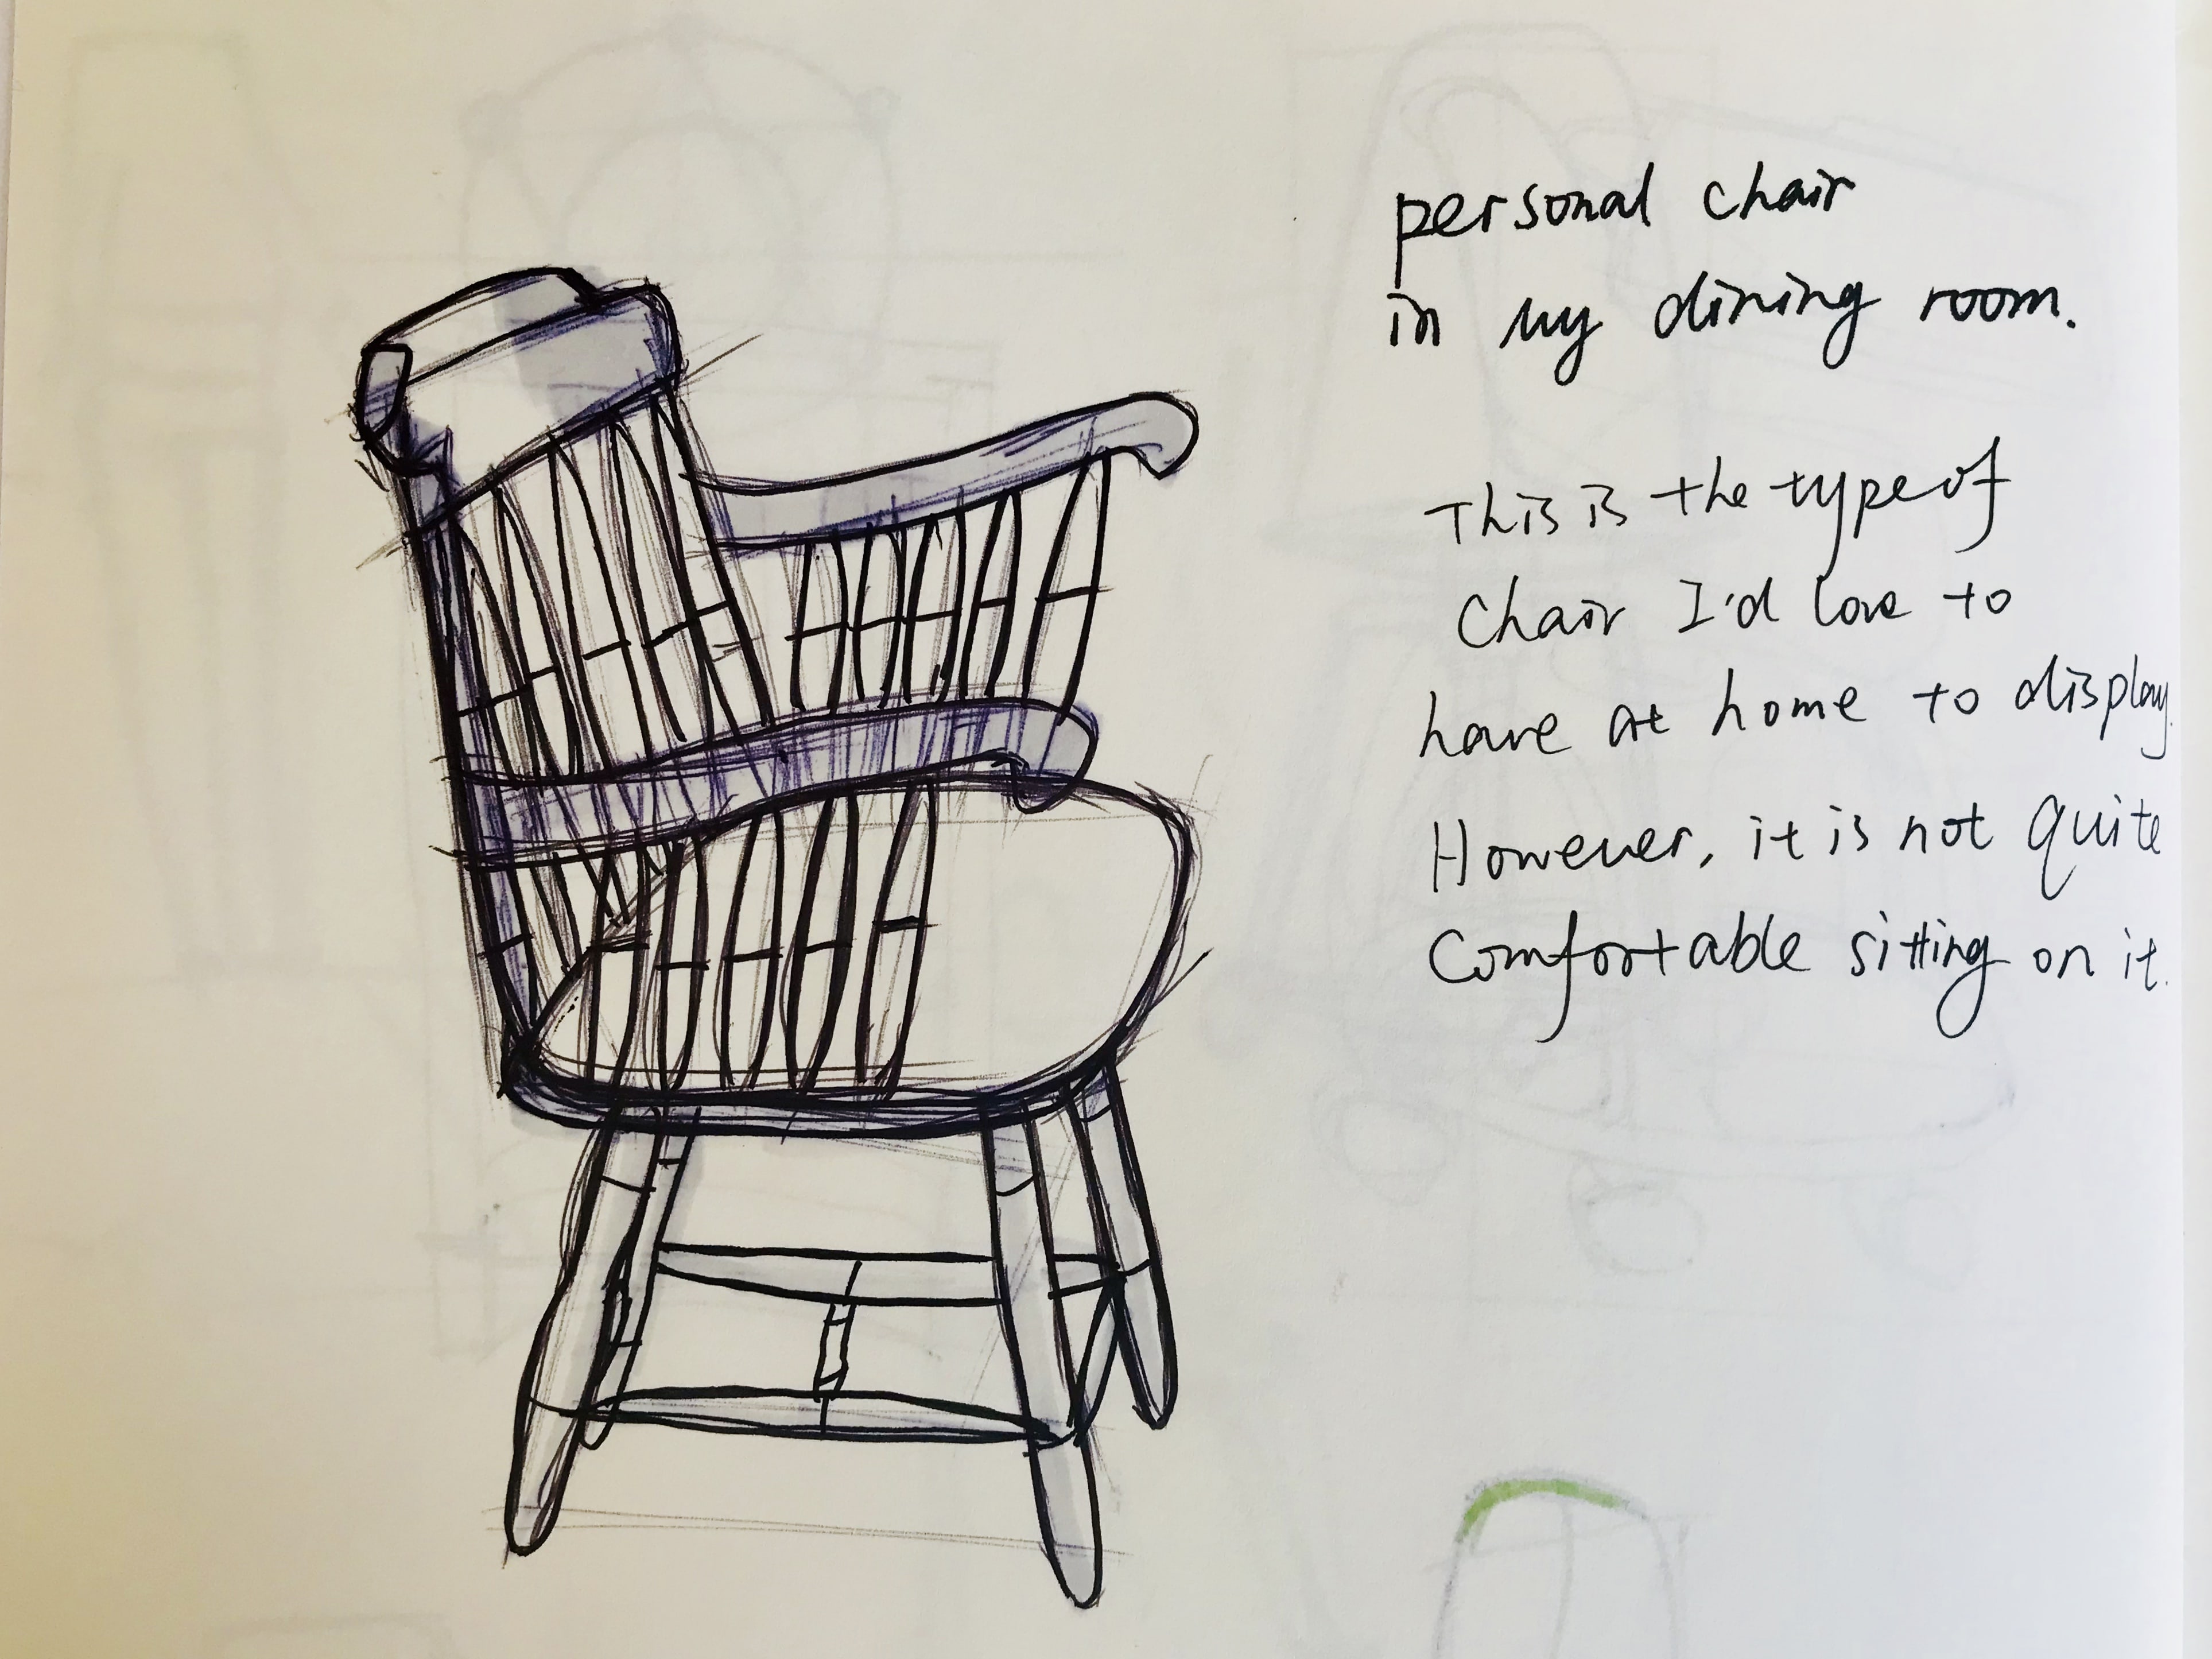 personal chair
in my dining room.
This is the type of
Chair I'd love to
have at home to display.
However, it is not quite
Comfortable sitting on it.